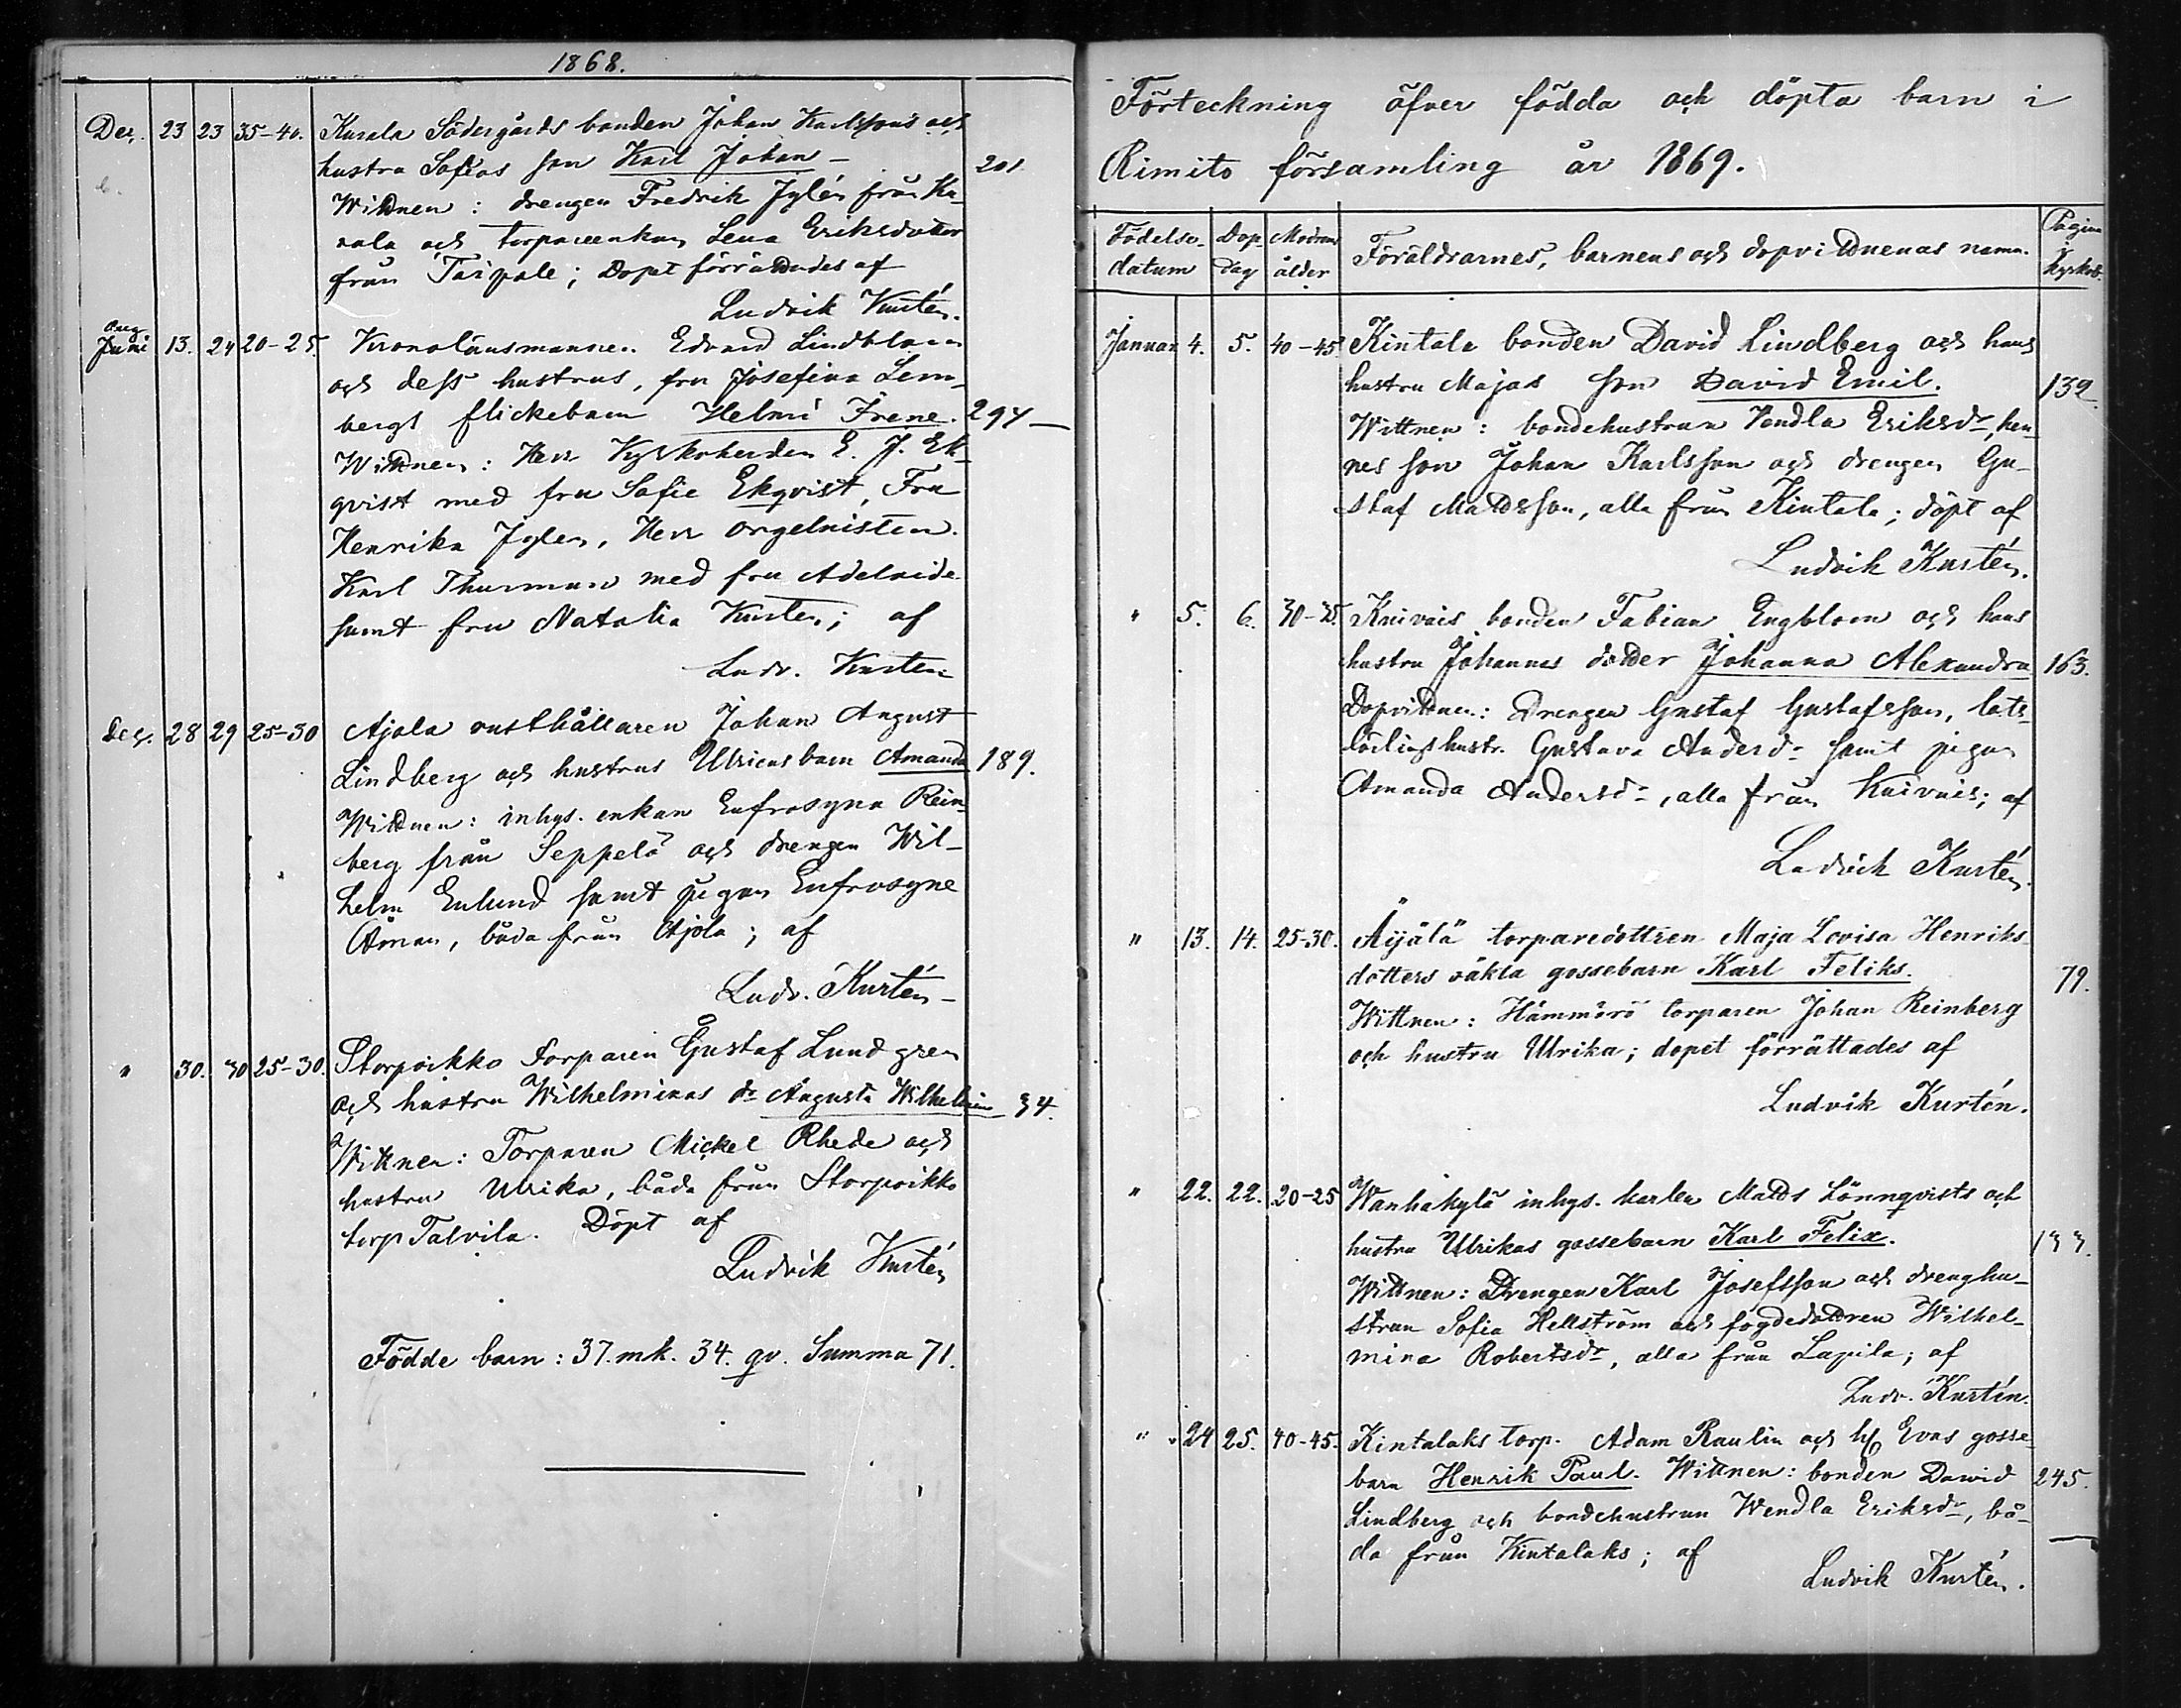 1868.
Dec. 23 23 35-40. Kurala Södergårds bonden Johan Karlssons och
hustru Sofias son Karl Johan - 201
Wittnen: drengen Fredrik Jylén från Ku-
rala och torpareenkan Lena Eriksdotter
från Taipale; Dopet förrättades af
Ludvik Kurtén.
Aug
Juni 13. 24 20-25 Kronolänsmannen Edvard Lindblom
och dess hustrus, fru Josefina Lem-
bergs flickebarn Helmi Irene. 294 -
Wittnen: Herr Kyrkoherden E. J. Ek-
qvist med fru Sofie Ekqvist, Fru
Henrika Jylen, Herr orgelnisten.
Karl Thurman med fru Adelaide
samt fru Natalia Kurten; af
Ludv. Kurten
Dec. 28 29 25-30 Ajola rusthållaren Johan August
Lindberg och hustrus Ulricas barn Amanda 189.
Wittnen: inhys. enkan Eufrosyna Rein-
berg från Seppelä och drengen Wil-
helm Enlund samt pigan Eufrosyne
Öman, båda från Ajola; af
Ludv. Kurtén -
" 30. 30 25-30. Storpoikko torparen Gustaf Lundgren
och hustru Wilhelminas dr Augusta Wilhelmina 34.
Wittnen: Torparen Mickel Rhede och
hustru Ulrika, båda från Storpoikko
torp Talvila. Döpt af
Ludvik Kurtén
Födde barn: 37. mk. 34. qv. Summa 71.
Förteckning öfver födda och döpta barn i
Rimito församling år 1869.
Födelse- Dop Modrens Pagina
datum dag ålder Föräldrarnes, barnens och dopvittnenas namn. i kyrkob.
Januar 4. 5. 40-45 Kintala bonden David Lindberg och hans
hustru Majas son David Emil. 132
Wittnen: bondehustrun Vendla Eriksdr, hen-
nes son Johan Karlsson och drengen Gu-
staf Mattsson, alla från Kintala; döpt af
Ludvik Kurtén.
" 5. 6. 30-35. Knivais bonden Fabian Engblom och hans
hustru Johannas dotter Johanna Alexandra 163.
Dopvittnen: Drengen Gustaf Gustafsson, lots-
lärlingshustr. Gustava Andersdr samt pigan
Amanda Andersdr, alla från Knivais; af
Ludvik Kurtén.
" 13. 14. 25-30. Äijälä torparedottren Maja Lovisa Henriks-
dotters oäkta gossebarn Karl Feliks. 79.
Wittnen: Hämmärö torparen Johan Reinberg
och hustru Ulrika; dopet förrättades af
Ludvik Kurtén.
" 22. 22. 20-25 Wanhakylä inhys. karlen Matts Lönnqvists och
hustru Ulrikas gossebarn Karl Felix. 133.
Wittnen: Drengen Karl Josefsson och drenghu-
strun Sofia Hellström och fogdedottren Wilhel-
mina Robertsdr, alla från Lapila; af
Ludv. Kurtén.
" 24 25. 40-45. Kintalaks torp. Adam Raulin och h Evas gosse-
barn Henrik Paul. Wittnen: bonden Dawid 245.
Lindberg och bondehustrun Wendla Eriksdr, bå-
da från Kintalaks; af
Ludvik Kurtén.